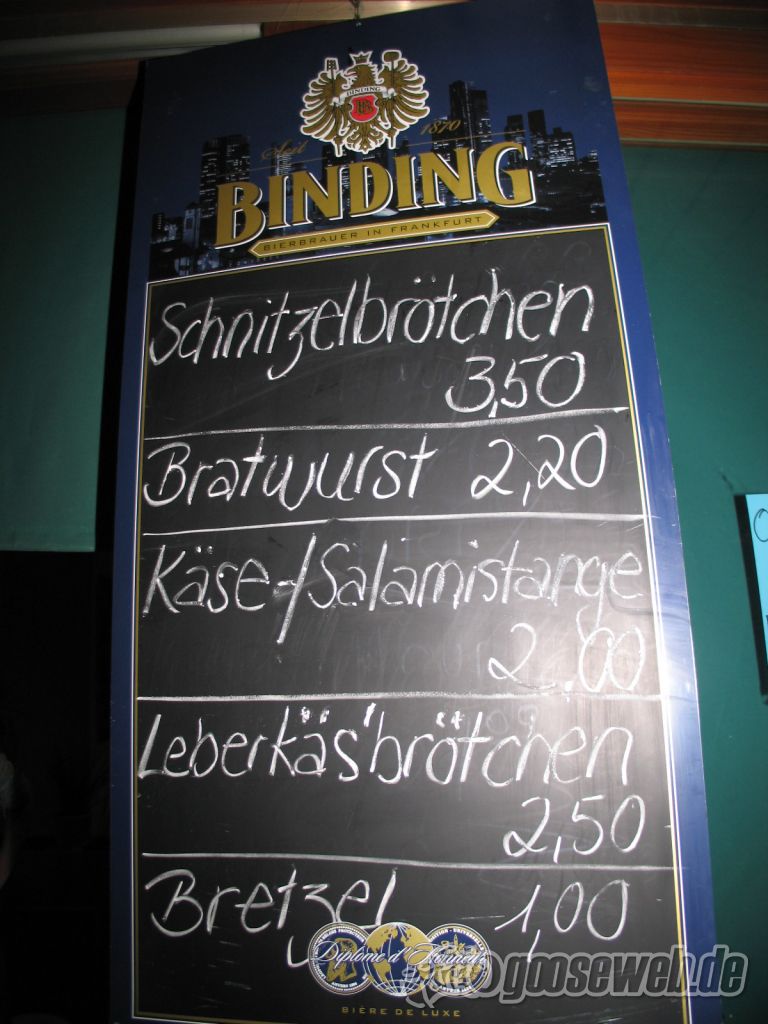 BINDING
Seit 1870
BINDING
BIERBRAUER IN FRANKFURT
Schnitzelbrötchen
3,50
Bratwurst 2,20
Käse-/Salamistange
2,00
Leberkäs'brötchen
2,50
Bretzel 1,00
Diplome d'Honneur
gooseweb.de
BIÈRE DE LUXE